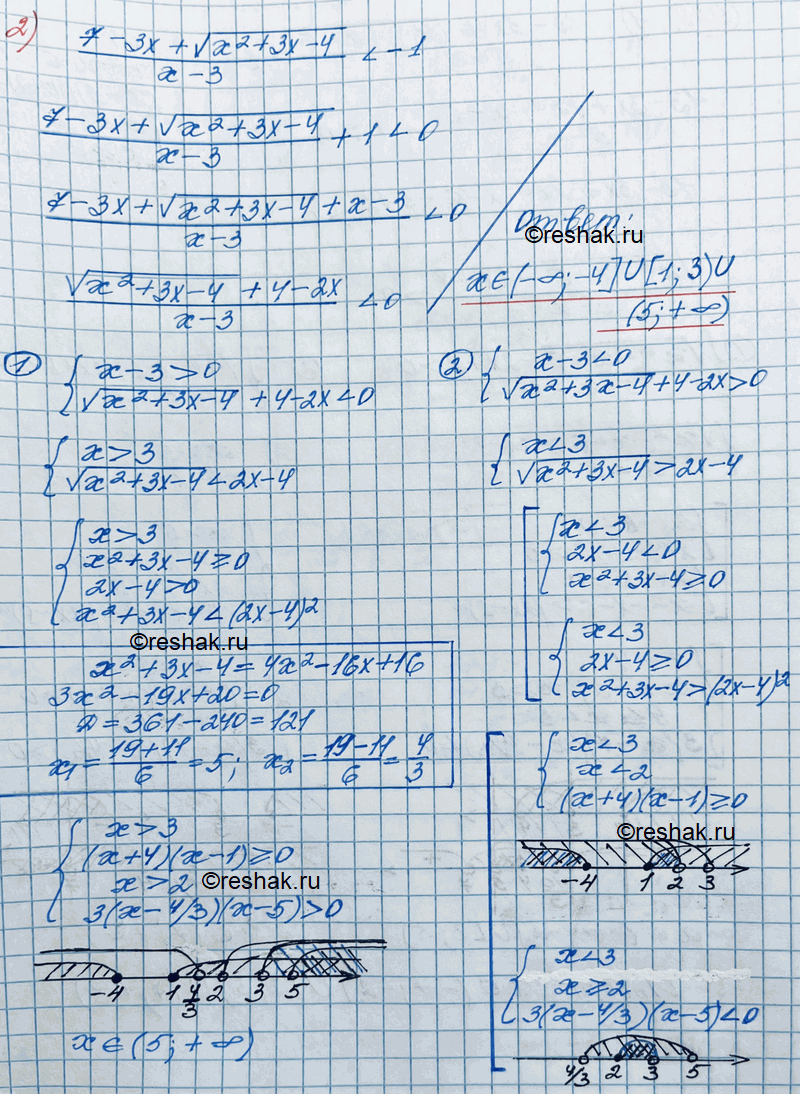 2)
(7-3x+√(x²+3x-4))/(x-3) < -1
(7-3x+√(x²+3x-4))/(x-3) + 1 < 0
(7-3x+√(x²+3x-4)+x-3)/(x-3) < 0
(√(x²+3x-4)+4-2x)/(x-3) < 0
Ответ:
©reshak.ru
x∈(-∞;-4]∪[1;3)∪
(5;+∞)
①
{ x-3>0
√(x²+3x-4)+4-2x<0
{ x>3
√(x²+3x-4)<2x-4
{ x>3
x²+3x-4≥0
2x-4>0
x²+3x-4<(2x-4)²
©reshak.ru
x²+3x-4=4x²-16x+16
3x²-19x+20=0
D=361-240=121
x₁=(19+11)/6=5; x₂=(19-11)/6=4/3
{ x>3
(x+4)(x-1)≥0
x>2
©reshak.ru
3(x-4/3)(x-5)>0
-4 1 4/3 2 3 5
x∈(5;+∞)
②
{ x-3<0
√(x²+3x-4)+4-2x>0
{ x<3
√(x²+3x-4)>2x-4
[ { x<3
2x-4<0
x²+3x-4≥0
{ x<3
2x-4≥0
x²+3x-4>(2x-4)²
[ { x<3
x<2
(x+4)(x-1)≥0
©reshak.ru
-4 1 2 3
{ x<3
x≥2
3(x-4/3)(x-5)<0
4/3 2 3 5